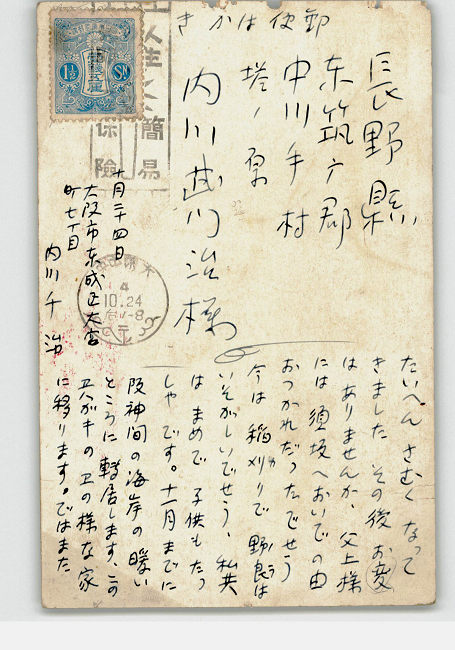 きかは便郵
長野縣
東筑广郡
中川手村
塔ノ原
内川
治様
十月二十四日
大阪市东成区大宮
町七丁目
内川千治
1½ SN
簡易
保險
4
10.24
たいへん さむく なって
きました その後 お変
は ありませんか、父上様
には 須坂へおいでの由
おつかれだったでせう
今は 稲刈りで 野良は
いそがしいでせう、私共
は まめで 子供も たっ
しゃです。十一月までに
阪神間の海岸の暖い
ところに 転居します、この
に移ります。ではまた